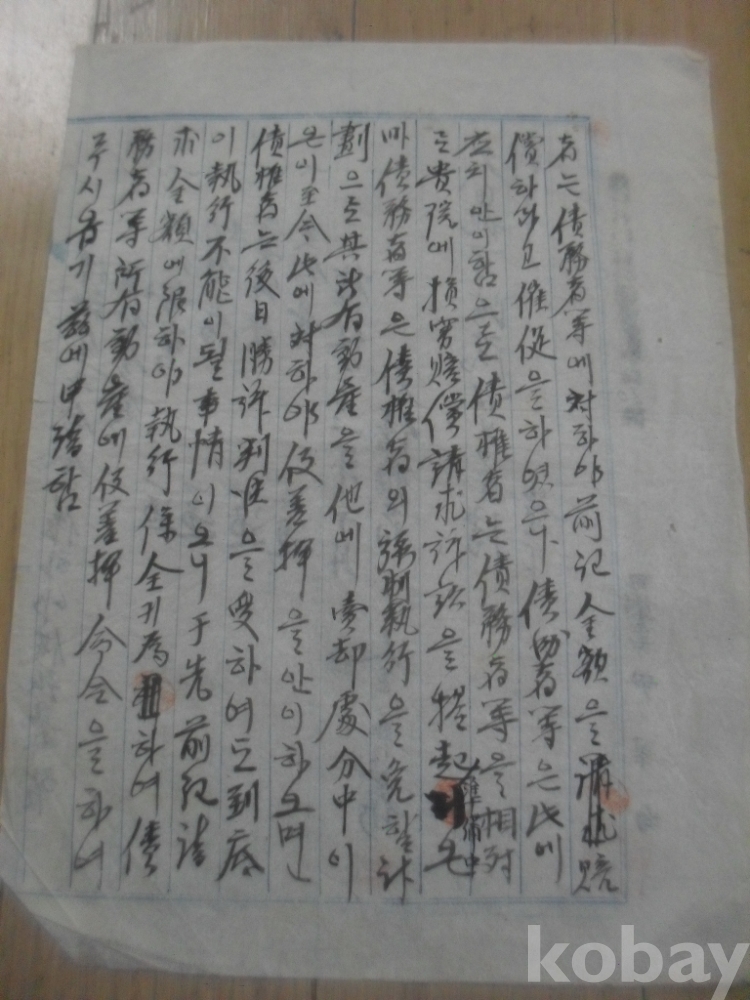 者는 債務者等에 対하야 前記 金額을 請求 賠
償하라고 催促을 하엿으나 債務者等은 此에
応치 안이함으로 債權者는 債務者等을 相対
로 貴院에 損害賠償請求訴訟을 提起 準備中 온
바 債務者等은 債權者의 强制執行을 免할 計
劃으로 其 所有動産을 他에 賣却處分中이
온이 至今 此에 対하야 仮差押을 안이하오면
債權者는 後日 勝訴判決을 受하여도 到底
이 執行不能이 될 事情이오니 于先 前記 請
求金額에 限하야 執行保全키 爲하여 債
務者等 所有動産에 仮差押命令을 하여
주시옵기 玆에 申請함
kobay